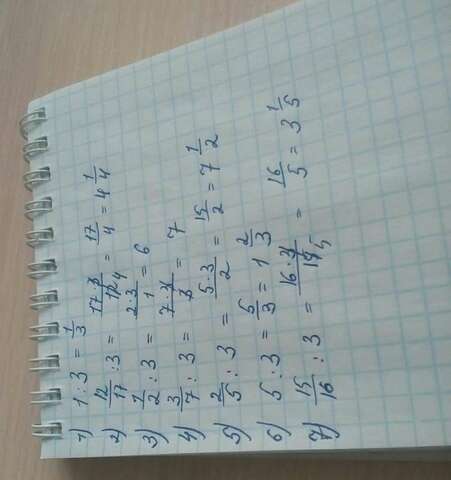 1) 1 : 3 = 1/3
2) 12/17 : 3 = 17·3/12 4 = 17/4 = 4 1/4
3) 1/2 : 3 = 2·3/1 = 6
4) 3/7 : 3 = 7·3/3 = 7
5) 2/5 : 3 = 5·3/2 = 15/2 = 7 1/2
6) 5 : 3 = 5/3 = 1 2/3
7) 15/16 : 3 = 16·3/15 5 = 16/5 = 3 1/5